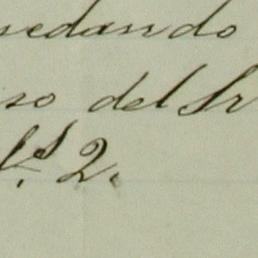 uedando
so del Sr
fs 2.